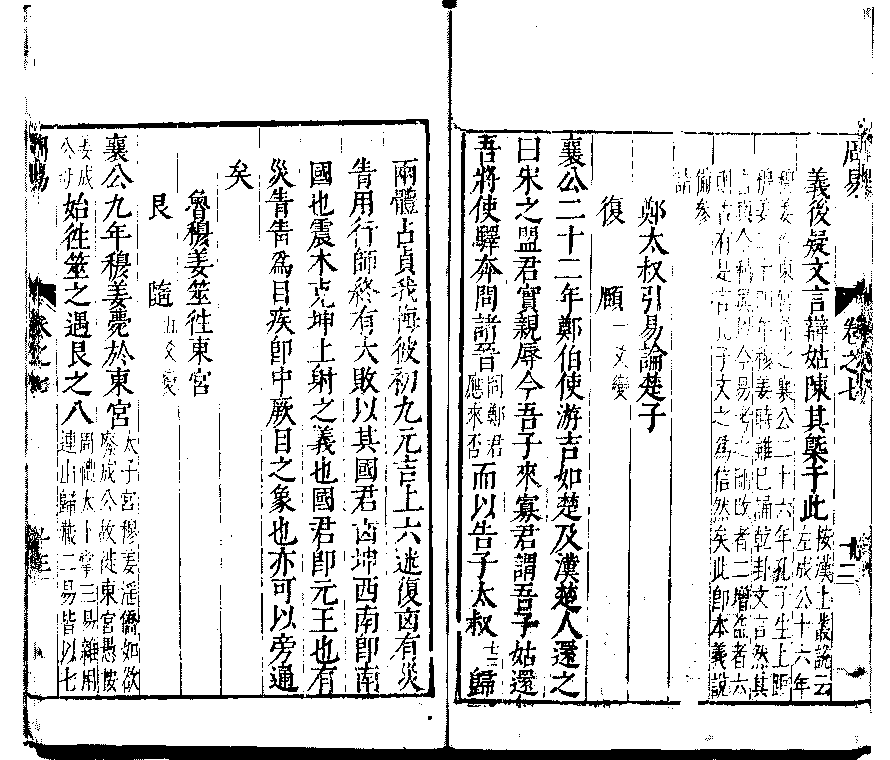 周易 卷之七 十二
義後疑文言辯姑陳其槩于此 按漢上叢說云
左成公十六年
穆姜往東宮筮之襄公二十六年孔子生上距
穆姜二十四年穆姜時雖已誦乾卦文言然其
言與今稱異以今易考之刪改者二增益者六
則古有是言孔子文之為信然矣此卽本義說
備參
鄭太叔引易論楚子
復 頤 一爻變
襄公二十二年鄭伯使游吉如楚及漢楚人還之
曰宋之盟君實親辱今吾子來寡君謂吾子姑還
吾將使驛奔問諸晉 問鄭君
應來否 而以告子太叔 歸
兩體占貞我悔彼初九元吉上六迷復凶有災
眚用行師終有大敗以其國君凶坤西南卽南
國也震木克坤土射之義也國君卽元王也有
災眚眚為目疾卽中厥目之象也亦可以旁通
矣
魯穆姜筮往東宮
艮 隨 五爻變
襄公九年穆姜薨於東宮 太子宮穆姜淫僑如欲
廢成公故徙東宮愚按
姜成
公母 始往筮之遇艮之八 周禮太卜掌三易雜用
連山歸藏二易皆以七
周易 卷之七